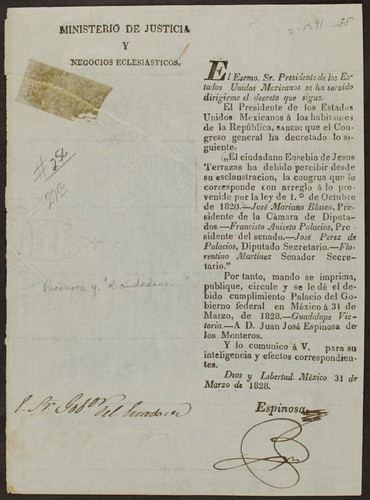 MINISTERIO DE JUSTICIA
Y
NEGOCIOS ECLESIASTICOS.
#256
El Esemo. Sr. Presidente de los Es-
tados Unidos Mexicanos se ha servido
dirigirme el decreto que sigue.
El Presidente de los Estados
Unidos Mexicanos á los habitantes
de la República, SABED: que el Con-
greso general ha decretado lo si-
guiente.
(„El ciudadano Eusebio de Jesus
Terrazas ha debido percibir desde
su esclaustracion, la congrua que le
corresponde con arreglo á lo pre-
venido por la ley de 1.º de Octubre
de 1820.—José Mariano Blasco, Pre-
sidente de la Cámara de Diputa-
dos.—Francisto Aniceto Palacios, Pre-
sidente del senado.—José Perez de
Palacios, Diputado Secretario.—Flo-
rentino Martinez Senador Secre-
tario.”
Por tanto, mando se imprima,
publique, circule y se le dé el de-
bido cumplimiento Palacio del Go-
bierno federal en México á 31 de
Marzo, de 1828.—Guadalupe Vic-
toria—A D. Juan José Espinosa de
los Monteros.
Y lo comunico á V. para su
inteligencia y efectos correspondien-
tes.
Dios y Libertad. México 31 de
Marzo de 1828.
Espinosa
"el ciudadano